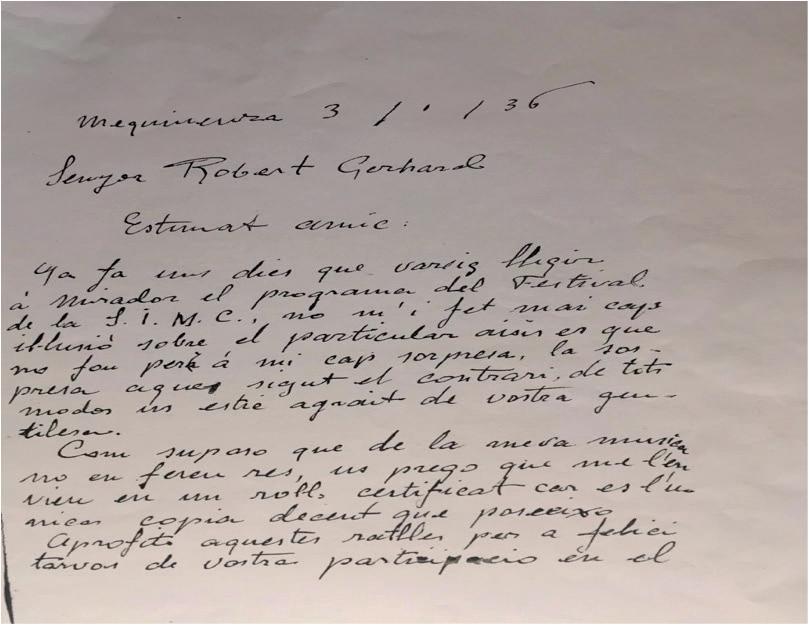 Mequinenza 3 / 1 / 36
Senyor Robert Gerhard
Estimat amic:
Ya fa uns dies que vareig lligir
á Mirador el programa del Festival
de la S. I. M. C., no m'i fet mai caps
il·lusió sobre el particular aisis es que
no fou perà á mi cap sorpresa, la sor-
presa agues sigut el contrari, de tots
modos us estic agrait de vostra gen-
tilesa.
Com suposo que de la meva musica
no en fereu res, us prego que me l'en
vieu en un rollo certificat car es l'u
nica copia decent que poseeixo
Aprofito aquestes ratlles per a felici
tarvos de vostra participacio en el